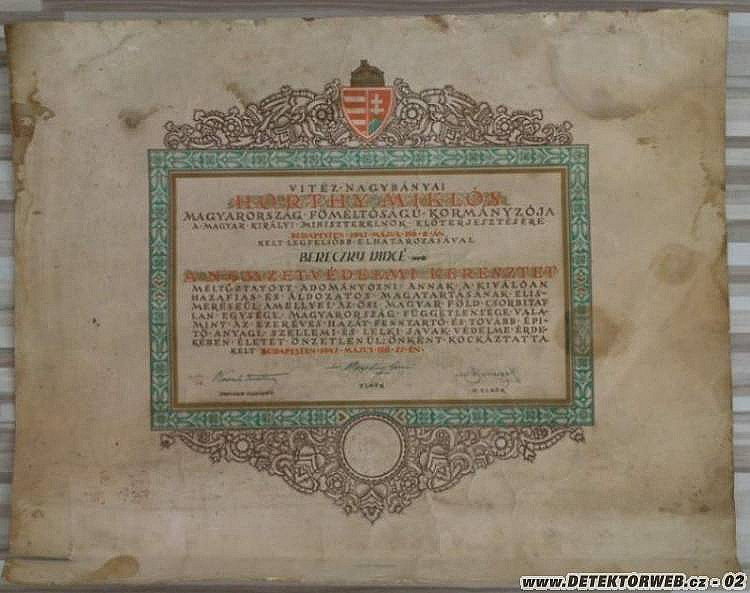 VITÉZ·NAGYBÁNYAI
HORTHY MIKLÓS
MAGYARORSZÁG·FŐMÉLTÓSÁGÚ·KORMÁNYZÓJA
A·MAGYAR·KIRÁLYI·MINISZTERELNÖK·ELŐTERJESZTÉSÉRE
BUDAPESTEN·1942·MÁJUS·HÓ
KELT·LEGFELSŐBB·ELHATÁROZÁSÁVAL
BERECZKY VINCÉ
A NEMZETVÉDELMI KERESZTET
MÉLTÓZTATOTT·ADOMÁNYOZNI·ANNAK·A·KIVÁLÓAN
HAZAFIAS·ÉS·ÁLDOZATOS·MAGATARTÁSÁNAK·ELIS-
MERÉSEÜL·AMELLYEL·AZ·ŐSI·MAGYAR·FÖLD·CSORBÍTAT-
LAN·EGYSÉGE·MAGYARORSZÁG·FÜGGETLENSÉGE·VALA-
MINT·AZ·EZERÉVES·HAZÁT·FENNTARTÓ·ÉS·TOVÁBB·ÉPÍ-
TŐ·ANYAGI·SZELLEMI·ÉS·LELKI·JAVAK·VÉDELME·ÉRDE-
KÉBEN·ÉLETÉT·ÖNZETLENÜL·ÖNKÉNT·KOCKÁZTATTA·
KELT·BUDAPESTEN·1942·MÁJUS·HÓ
ELNÖK
www.DETEKTORWEB.cz - 02